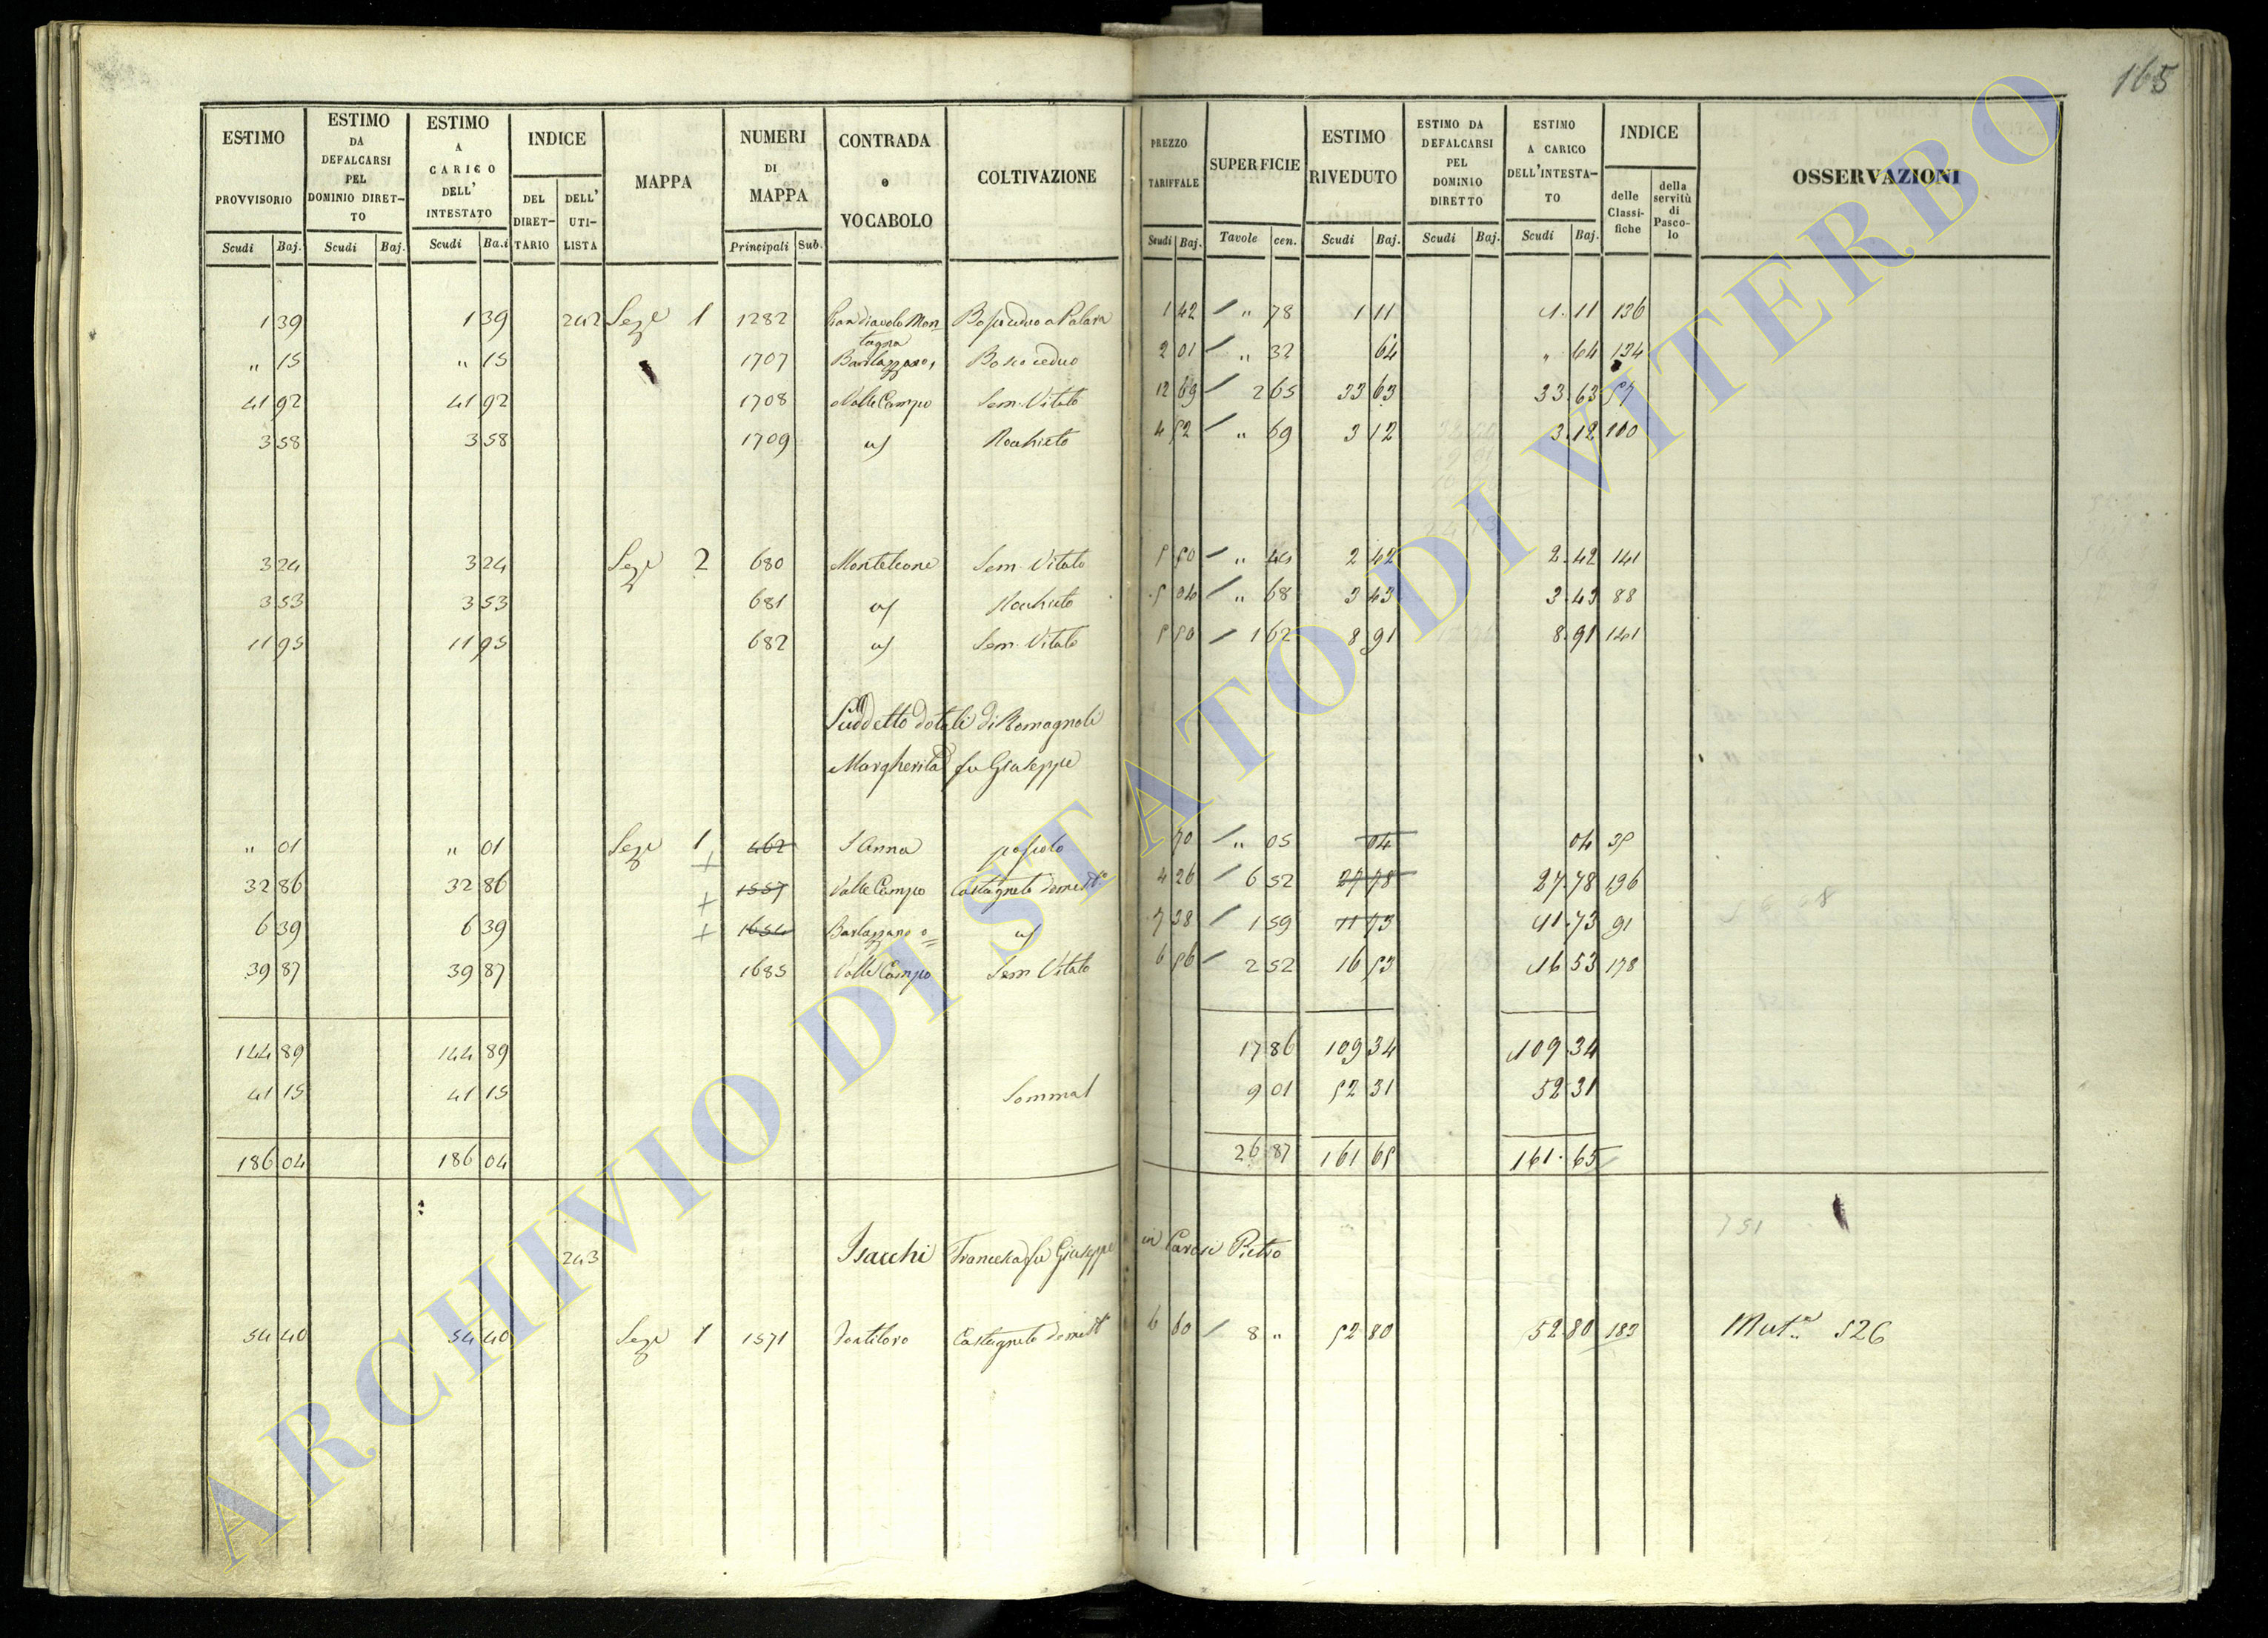 165
ESTIMO PROVVISORIO Scudi Baj.
ESTIMO DA DEFALCARSI PEL DOMINIO DIRETTO Scudi Baj.
ESTIMO A CARICO DELL' INTESTATO Scudi Ba.i
INDICE DEL DIRETTARIO DELL' UTILISTA
MAPPA
NUMERI DI MAPPA Principali Sub.
CONTRADA o VOCABOLO
COLTIVAZIONE
PREZZO TARIFFALE Scudi Baj.
SUPERFICIE Tavole cen.
ESTIMO RIVEDUTO Scudi Baj.
ESTIMO DA DEFALCARSI PEL DOMINIO DIRETTO Scudi Baj.
ESTIMO A CARICO DELL'INTESTATO Scudi Baj.
INDICE delle Classifiche della servitù di Pascolo
OSSERVAZIONI
1 39 1 39 242 Seze 1 1282 Montagna Bosco ceduo a Palara 1 42 / " 78 1 11 1.11 136
" 15 " 15 1707 Barlazzano Bosco ceduo 2 01 / " 32 64 " 64 134
41 92 41 92 1708 Valle Campo Sem. Vitato 12 69 / 2 65 33 63 33.63 57
3 58 3 58 1709 Rochieto 4 52 / " 69 3 12 3.12 100
3 24 3 24 Seze 2 680 Monteleone Sem. Vitato 5 50 / " 44 2 42 2.42 141
3 53 3 53 681 Rochieto 5 04 / " 68 3 43 3.43 88
11 95 11 95 682 Sem. Vitato 5 50 / 1 62 8 91 8.91 141
Suddetto dotali di Romagnoli
Margherita fu Giuseppe
" 01 " 01 Seze 1 462 S Anna pascolo 70 / " 05 04 04 35
32 86 32 86 + 1557 Valle Campo Castagneto domest.o 4 26 / 6 52 27 78 27.78 196
6 39 6 39 + 1654 Barlazzano 7 38 / 1 59 11 73 11.73 91
39 87 39 87 1685 Valle Campo Sem. Vitato 6 56 / 2 52 16 53 16 53 178
144 89 144 89 17 86 109 34 109.34
41 15 41 15 Somma 9 01 52 31 52.31
186 04 186 04 26 87 161 65 161.65
243 Isacchi Francesca fu Giuseppe in Carosi Pietro
54 40 54 40 Seze 1 1571 Fontiloro Castagneto domest 6 60 / 8 " 52 80 52.80 183 Mut.e 526
ARCHIVIO DI STATO DI VITERBO